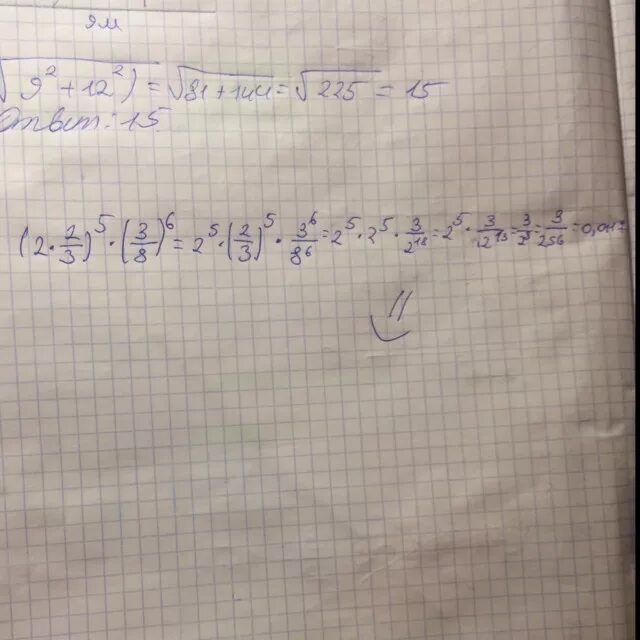 9м
√9²+12²) = √81+144 = √225 = 15
Ответ: 15.
(2·2/3)⁵·(3/8)⁶ = 2⁵·(2/3)⁵·3⁶/8⁶ = 2⁵·2⁵·3/2¹⁸ = 2⁵·3/2¹³ = 3/2⁸ = 3/256 = 0,011